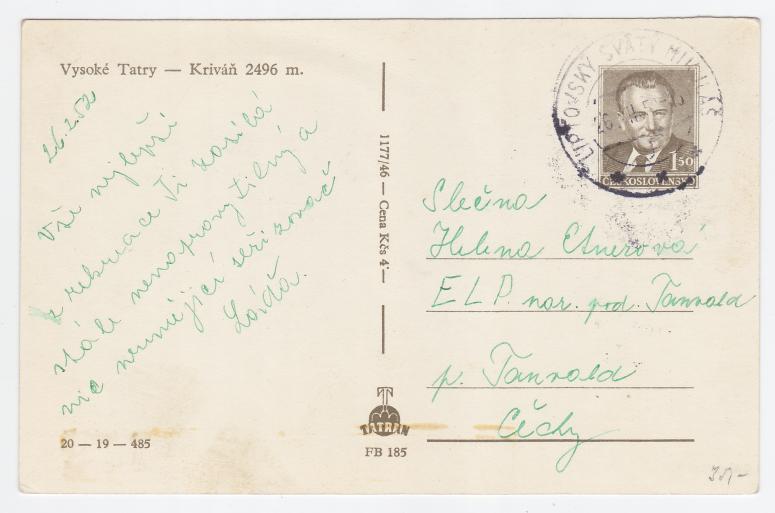 Vysoké Tatry — Kriváň 2496 m.
26.2.52
Vše nejlepší
z rekreace Ti zasílá
stále nenapravitelný a
nic neumějící seřizovač
Láďa.
20 — 19 — 485
1177/46 — Cena Kčs 4·—
TATRAN
FB 185
LIPTOVSKÝ SVÄTÝ MIKULÁŠ
1·50
ČESKOSLOVENSKO
Slečna
Helena Etnerová
ELP nár. pod. Tanvald
p. Tanvald
Čechy